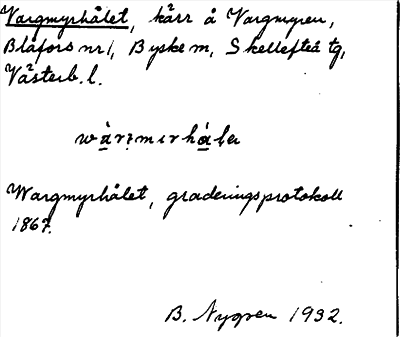 Vargmyrhålet, kärr å Vargmyren,
Blåfors nr 1, Byske m, Skellefteå tg,
Västerb. l.
Wargmyrhålet, graderingsprotokoll
1867.
B. Nygren 1932.